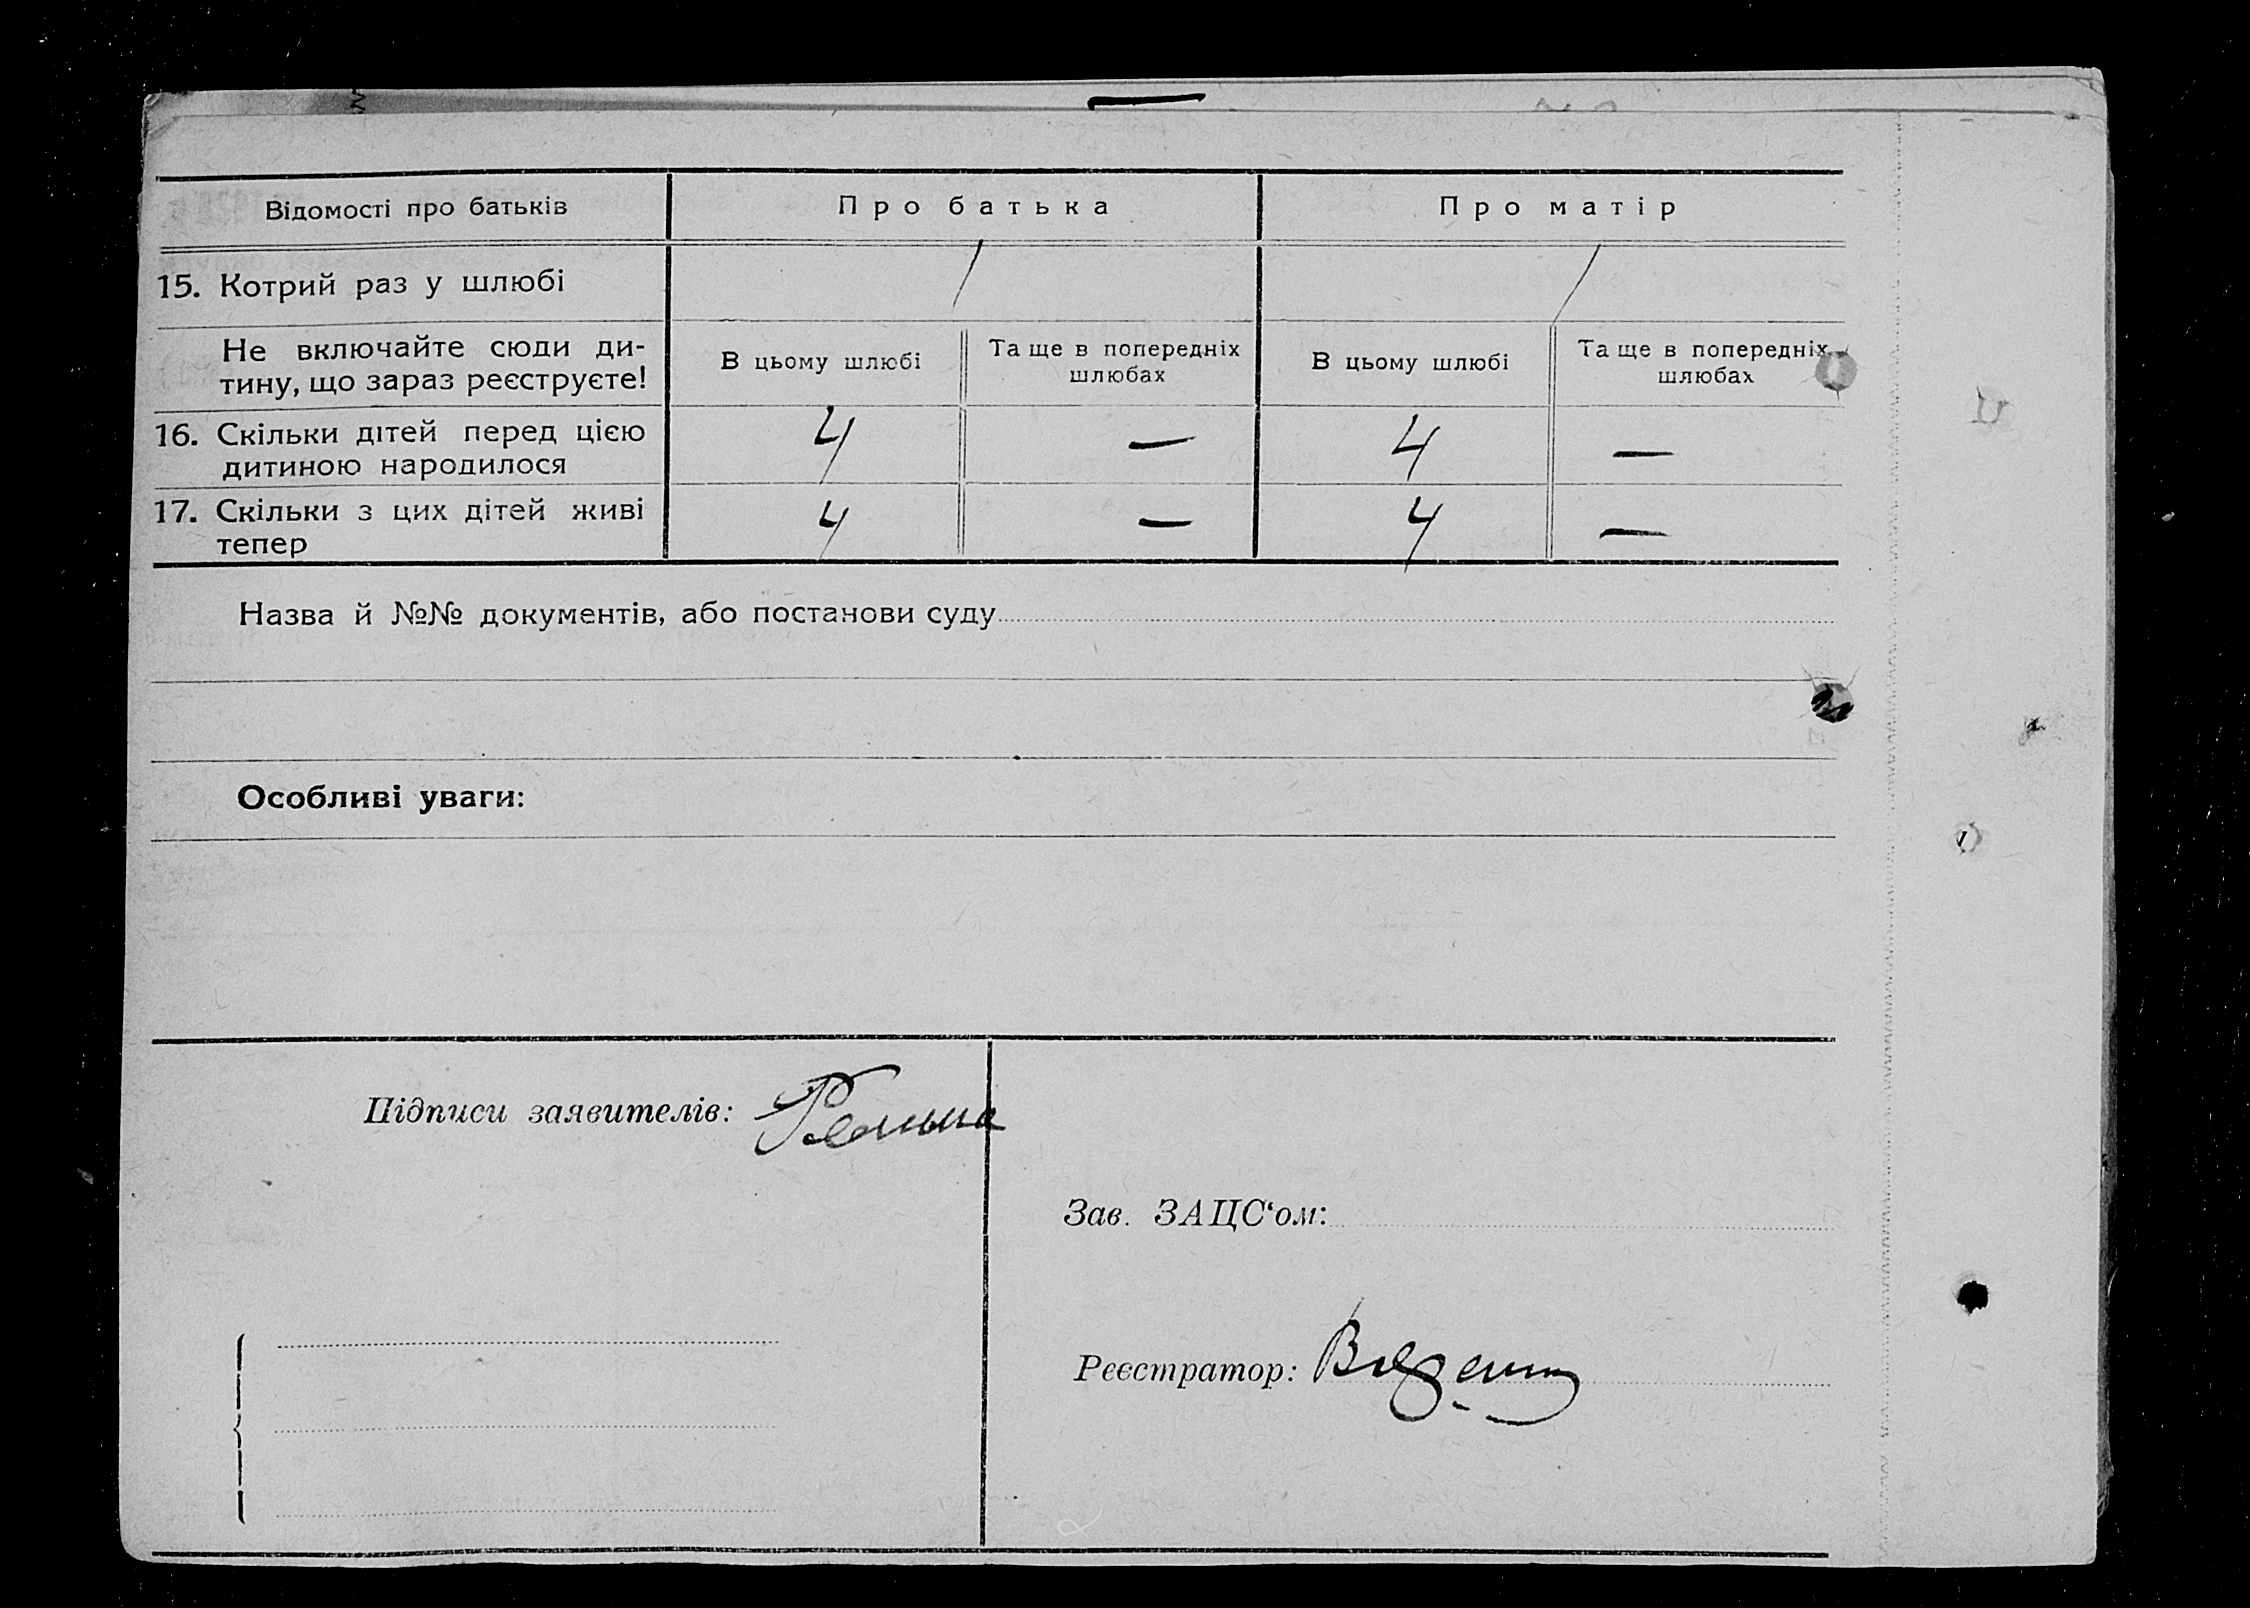 Відомості про батьків Про батька Про матір
15. Котрий раз у шлюбі / /
Не включайте сюди ди-
тину, що зараз реєструєте!
В цьому шлюбі
Та ще в попередніх
шлюбах
В цьому шлюбі
Та ще в попередніх
шлюбах
16. Скільки дітей перед цією
дитиною народилося
4 — 4 —
17. Скільки з цих дітей живі
тепер
4 — 4 —
Назва й №№ документів, або постанови суду
Особливі уваги:
Підписи заявителів:
Зав. ЗАЦС‘ом:
Реєстратор: